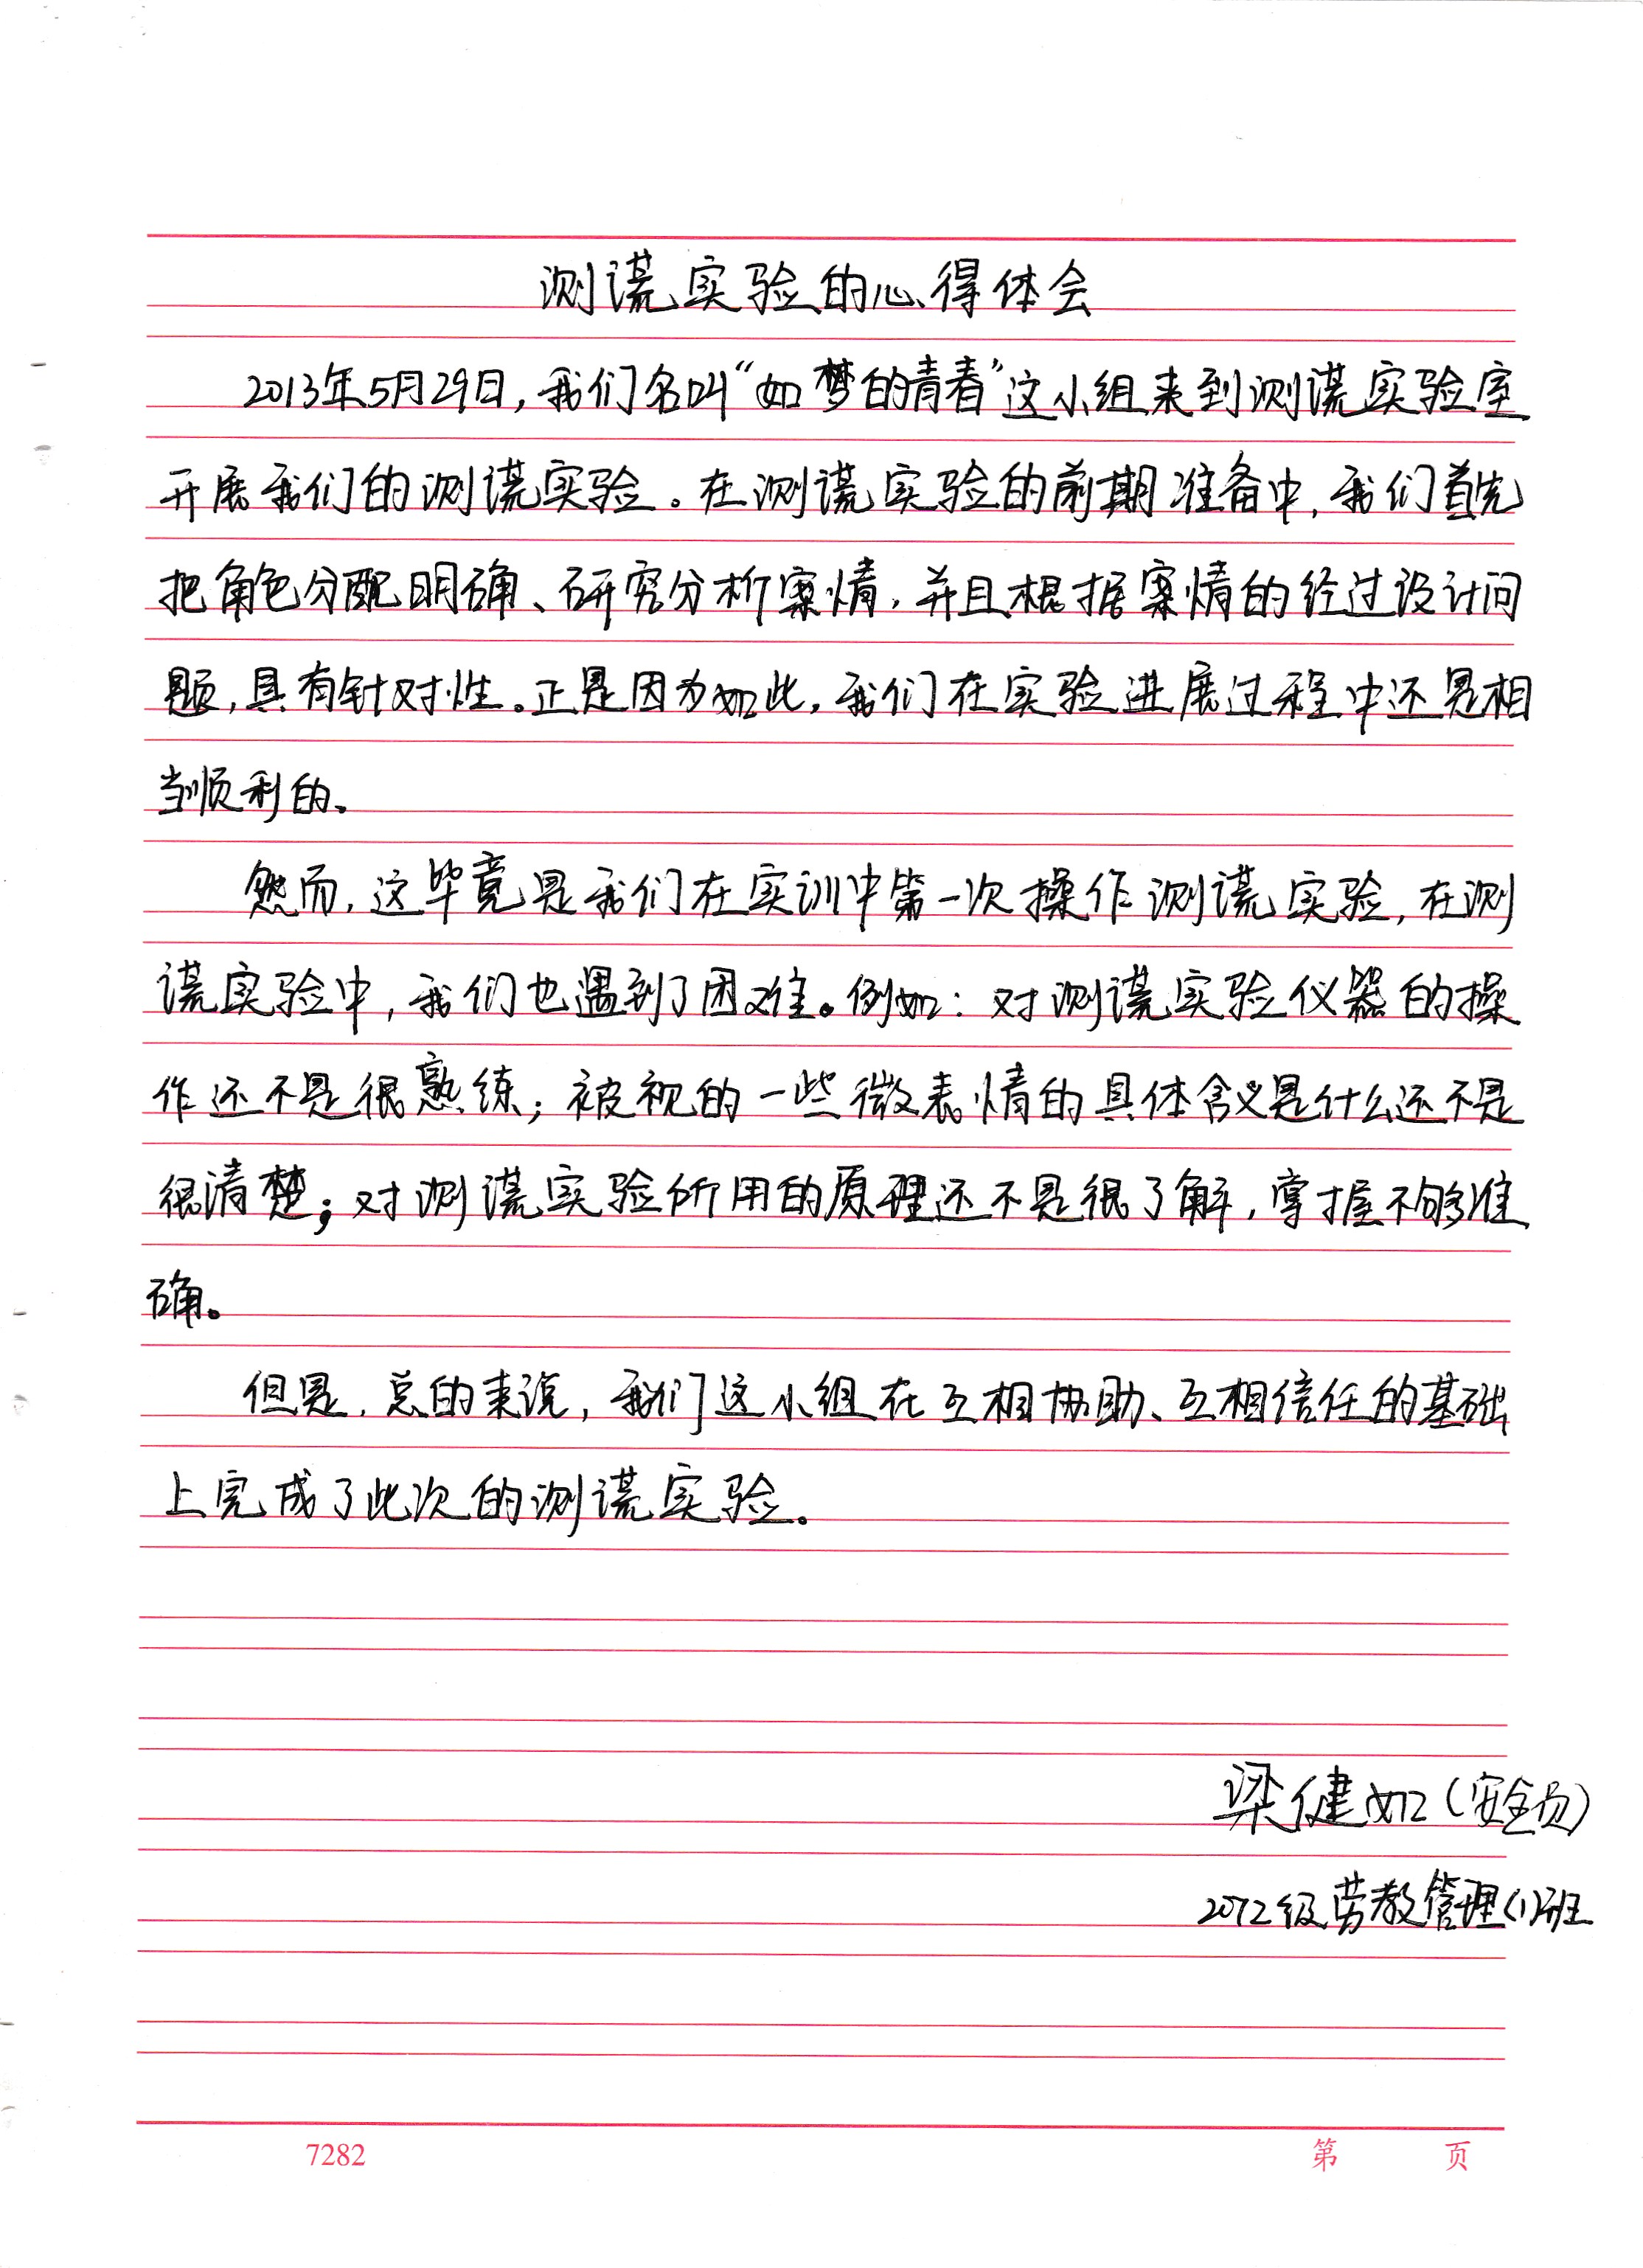 测谎实验的心得体会
2013年5月29日,我们名叫“如梦的青春”这小组来到测谎实验室
开展我们的测谎实验。在测谎实验的前期准备中,我们首先
把角色分配明确、研究分析案情,并且根据案情的经过设计问
题,具有针对性。正是因为如此,我们在实验进展过程中还是相
当顺利的。
然而,这毕竟是我们在实训中第一次操作测谎实验,在测
谎实验中,我们也遇到了困难。例如:对测谎实验仪器的操
作还不是很熟练;被视的一些微表情的具体含义是什么还不是
很清楚;对测谎实验所用的原理还不是很了解,掌握不够准
确。
但是,总的来说,我们这小组在互相协助、互相信任的基础
上完成了此次的测谎实验。
梁健如(安全员)
2012级劳教管理(1)班
7282 第 页